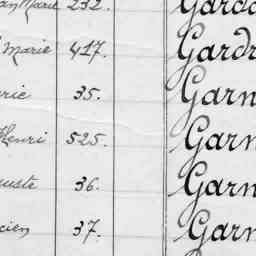 an Marie 232. Gard
Marie 417. Gardr
rie 35. Garn
Henri 525. Garn
uste 36. Garn
cien 37. Garn